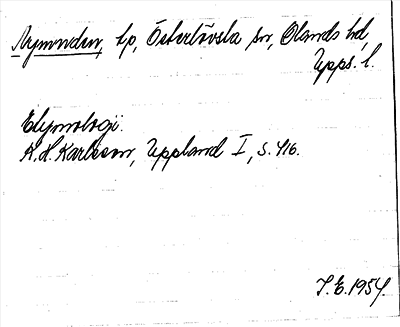 Nymnden, tp, Österlövsta sn, Olands hd,
Upps. l.
Etymologi.
K. H. Karlsson, Uppland I, s. 416.
J. E. 1954.